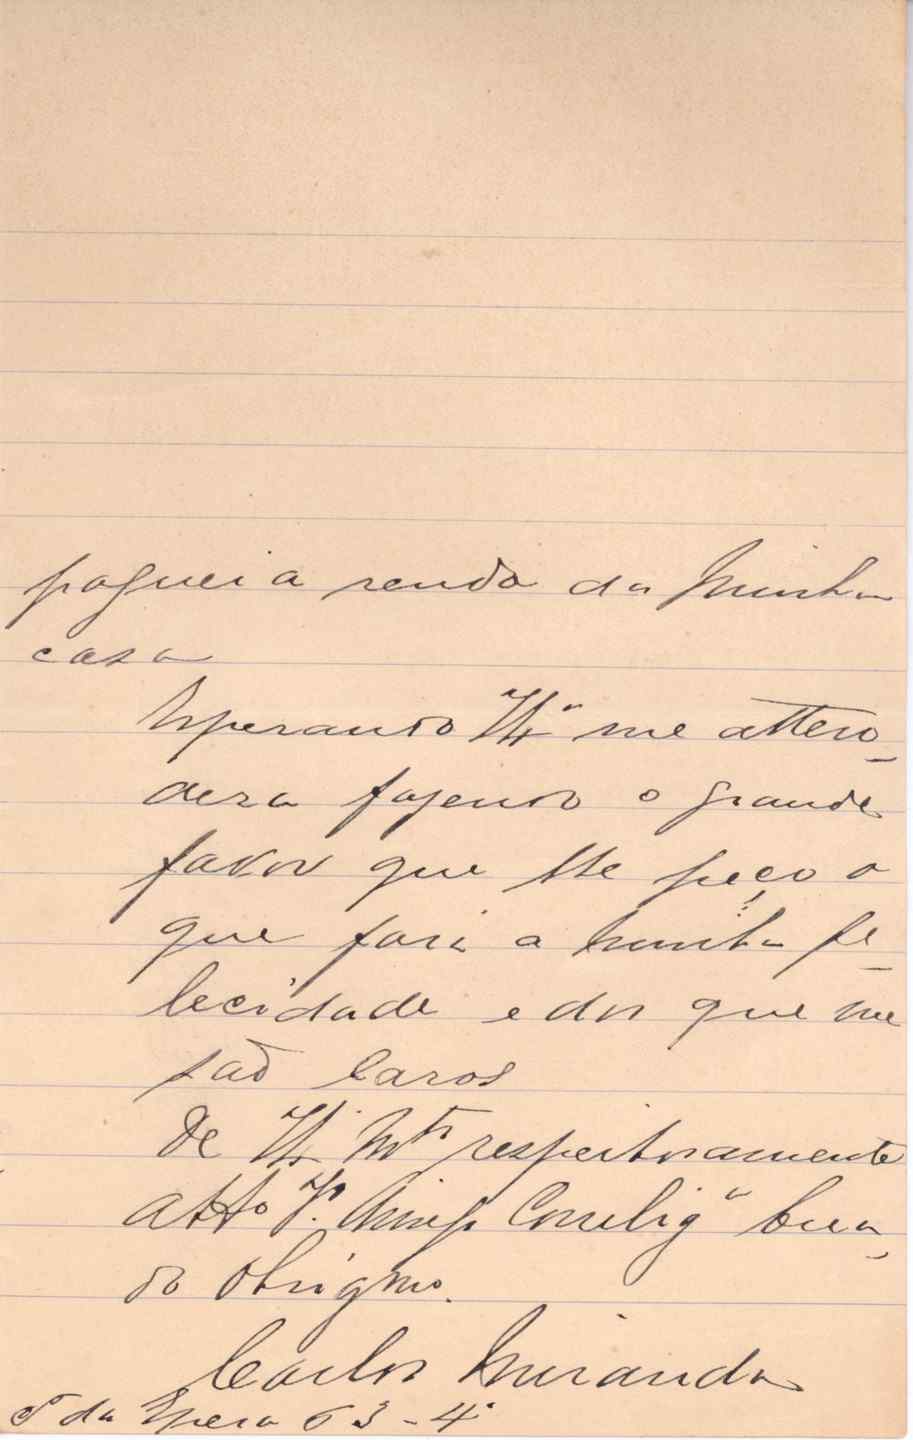 paguei a renda da minha
casa
Esperando V. Ex.ª me atten-
dera fazendo o grande
favor que lhe peço o
que fará a minha fe-
lecidade e dos que me
são caros
De V. Ex.ª M.to respeitosamente
att.o V.or Amigo Correlig.º crea-
do Obrigmo.
Carlos Miranda
da Espera 63-4º